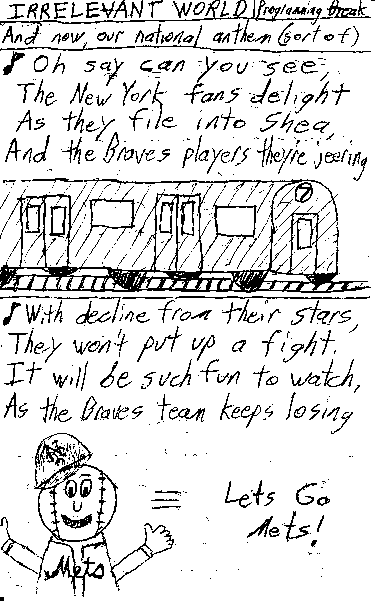 IRRELEVANT WORLD Programming Break
And now, our national anthem (sort of)
Oh say can you see,
The New York fans delight
As they file into Shea,
And the Braves players they're jeering
7
With decline from their stars,
They won't put up a fight.
It will be such fun to watch,
As the Braves team keeps losing
NY
Lets Go
Mets!
Mets